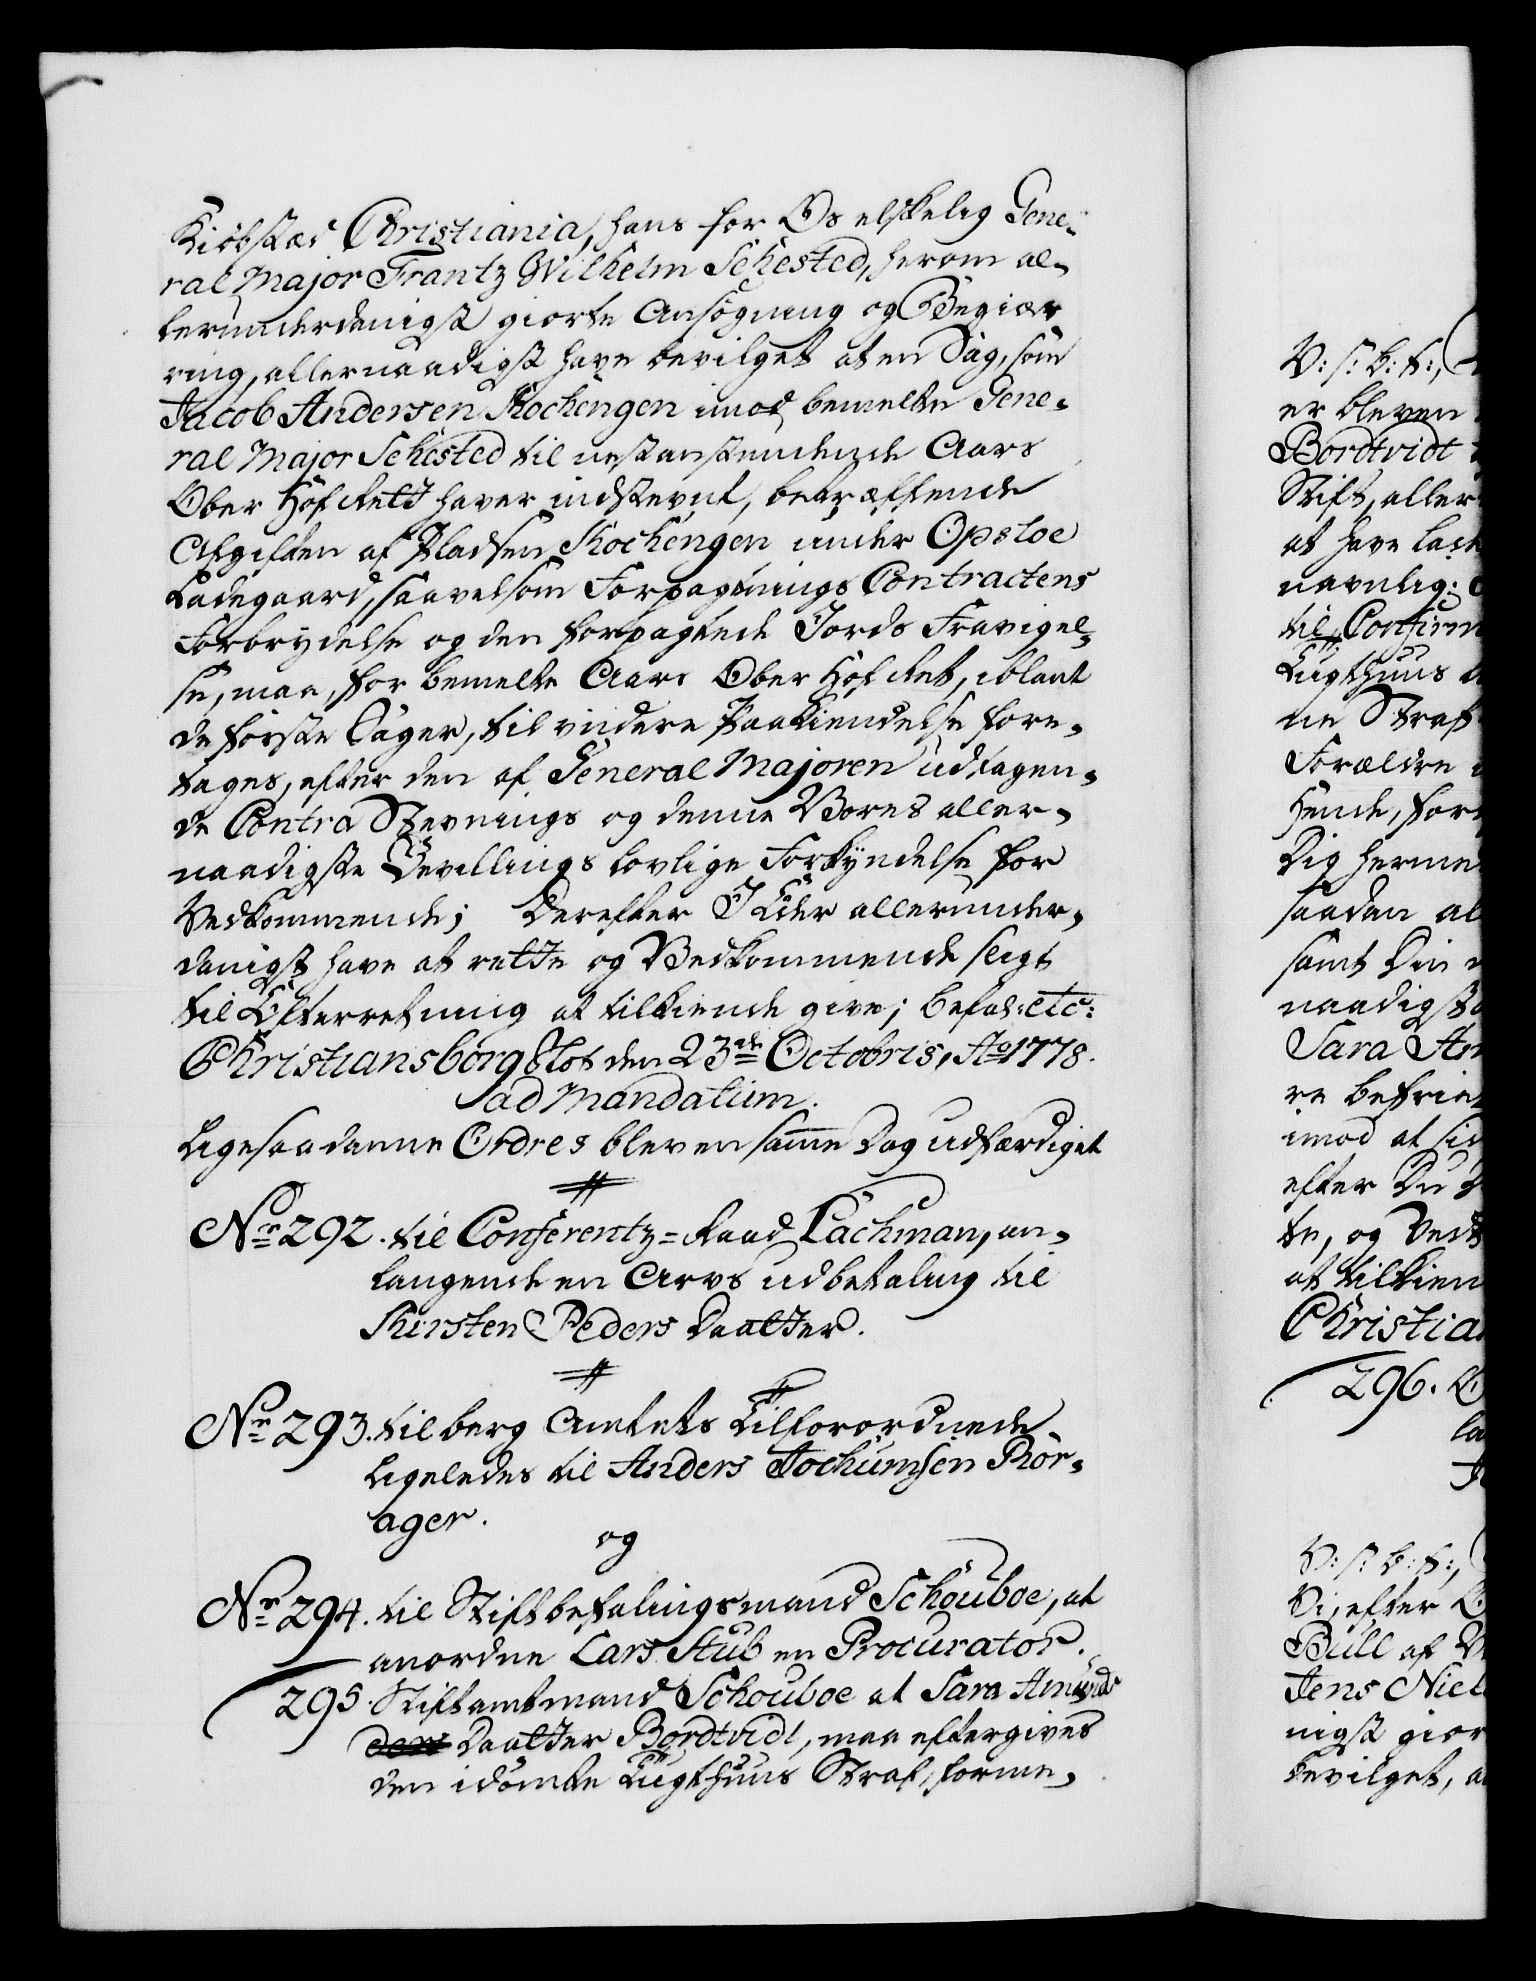 Kiøbstæd Christiania, hans for Os elskelig Gene-
ral Major Frantz Wilhelm Sehested, herom al-
lerunderdanigst giorte Ansøgning og Begiær
ring, allernaadigst have bevilget at en Sag, som
Jacob Andersen Kochengen imod bemelte Gene-
ral Major Sehested til nestanstundende Aars
Ober Hof Rett haver indstevnt, betræffende
Afgiften af Pladsen Kochengen under Opsloe
Ladegaard, saavelsom Forpagtnings Contractens
Forbrydelse og den forpagtede Jords Fravigel-
se, maa, for bemelte Aars Ober Hof Ret, iblant
de første Sager, til videre Paakiendelse fore-
tages, efter den af General Majoren udtagen-
de Contra Stevnings og denne Vores aller-
naadigste Bevillings lovlige Forkyndelse for
Vedkommende; Derefter I Eder allerunder-
danigst have at rette og Vedkommende sligt
til Efterretning at tilkiende give; befal: etc:
Christiansborg Slot den 23de Octobris, Ao 1778.
ad Mandatum.
Ligesaadanne Ordres bleven samme Dag udfærdiget
No 292. til Conferentz=Raad Lachman, an-
langende en Arvs udbetaling til
Kirsten Peders Daatter.
No 293. til berg Amtets Tilforordnede
ligeledes til Anders Jochumsen Rør-
ager.
og
No 294. til Stiftbefalingsmand Schouboe, at
anordne Lars Stub en Procurator.
295. Stiftamtmand Schouboe at Sara Amunds
Daatter Bordtvidt, maa eftergives
den idømte Tugthuus Straf, forme-
V: s: b: f:,
er bleven
Bordtvidt
Stift, aller
at have
navnlig:
til Confirm
Tugthuus
ne Straf
Forældre
Hende, for
Dig herme
saadan al
samt Din
naadigst
Sara Am
re befrie
imod at
efter Du
te, og Ved
at tilkien
Christian
296.
V: s: b: f:,
Vi, efter
Bull af
Jens Niel
nigst gior
bevilget, a